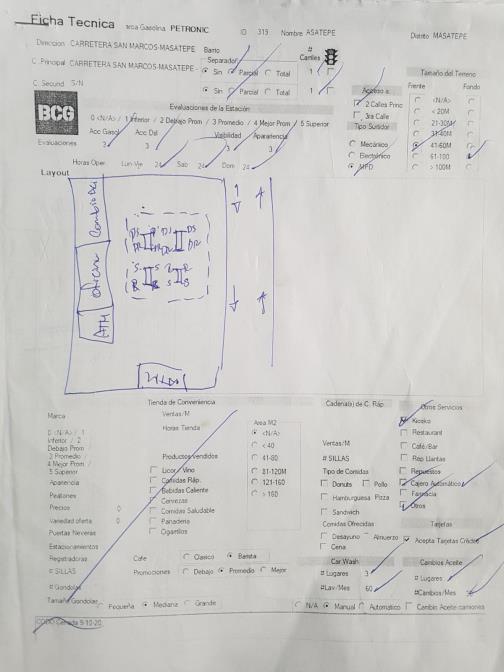 Ficha Tecnica
Marca Gasolina PETRONIC ID 319 Nombre ASATEPE Distrito MASATEPE
Direccion CARRETERA SAN MARCOS-MASATEPE Barrio # Carriles
C. Principal CARRETERA SAN MARCOS-MASATEPE Separador Sin Parcial Total 1
C. Secund S/N Sin Parcial Total 1
Tamaño del Terreno
Frente Fondo
<N/A>
< 20M
21-30M
31-40M
41-60M
61-100
> 100M
Acceso a
2 Calles Princ
3ra Calle
Tipo Surtidor
Mecánico
Electrónico
MPD
BCG
Evaluaciones de la Estación
0 <N/A> / 1 Inferior / 2 Debajo Prom / 3 Promedio / 4 Mejor Prom / 5 Superior
Acc Gasol Acc Dsl Visibilidad Apariencia
Evaluaciones 3 3 3 3
Horas Oper Lun-Vie 24 Sab 24 Dom 24
Layout
Oficina
ATM
Tienda de Conveniencia
Marca Ventas/M
0 <N/A> / 1
Inferior / 2
Debajo Prom /
3 Promedio /
4 Mejor Prom /
5 Superior
Apariencia
Peatones
Precios 0
Variedad oferta 0
Puertas Neveras
Estacionamientos
Registradoras
# SILLAS
# Gondolas
Tamaño Gondolas Pequeña Mediana Grande
Horas Tienda
Productos vendidos
Licor/ Vino
Comidas Ráp.
Bebidas Caliente
Cervezas
Comidas Saludable
Panaderia
Cigarrillos
Cafe Clasico Barista
Promociones Debajo Promedio Mejor
Area M2
<N/A>
< 40
41-80
81-120M
121-160
> 160
Cadena(s) de C. Ráp.
Ventas/M
# SILLAS
Tipo de Comidas
Donuts Pollo
Hamburguesa Pizza
Sandwich
Comidas Ofrecidas
Desayuno Almuerzo
Cena
Otros Servicios
Kiosko
Restaurant
Café/Bar
Rep Llantas
Repuestos
Cajero Automático
Farmacia
Otros
Tarjetas
Acepta Tarjetas Crédito
Car Wash
# Lugares 3
#Lav/Mes 60
N/A Manual Automatico
Cambios Aceite
# Lugares
#Cambios/Mes
Cambio Aceite camiones